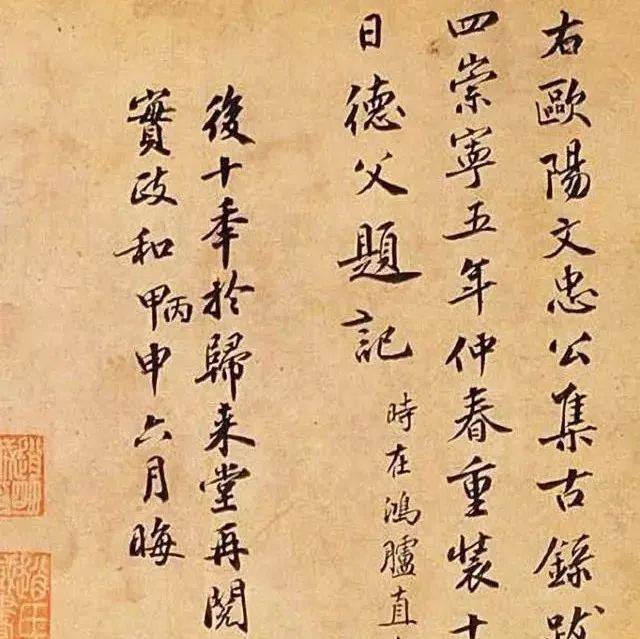 右歐陽文忠公集古錄跋
四崇寧五年仲春重装十
日德父題記
時在鴻臚直
後十秊於歸来堂再閱
實政和甲丙申六月晦